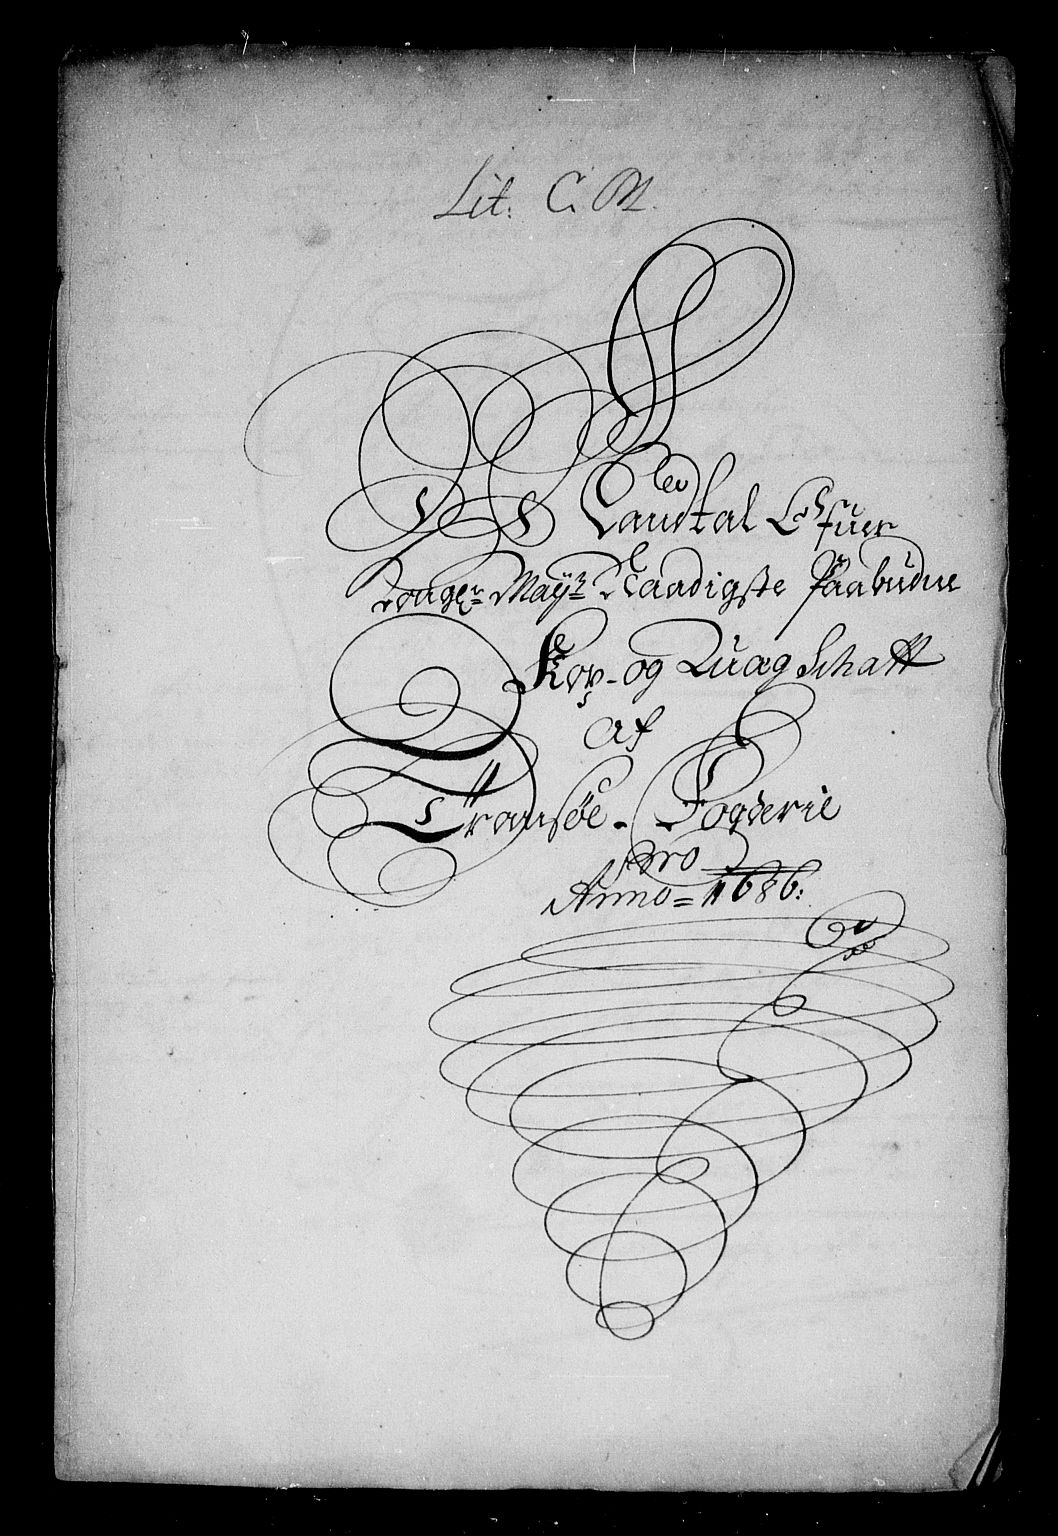 Lit. C. M.
Mandtal Ofuer
Kongl: Maÿ:ts Naadigste Paabudne
Kop- og Quæg Schatt
Af
Tromsøe Fogderie
pro
Anno = 1686: